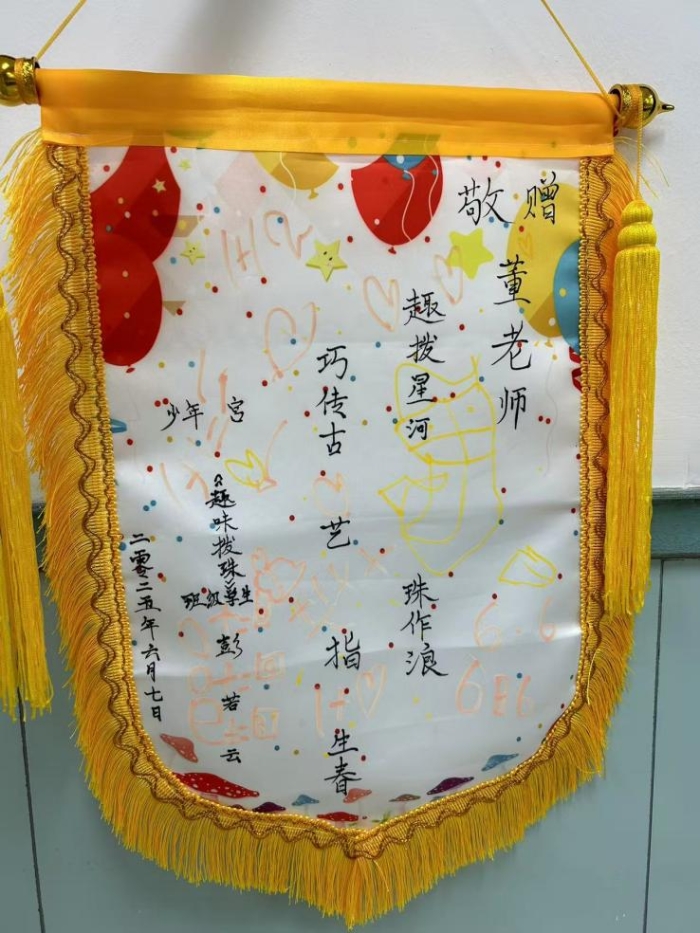 敬赠
董老师
趣拨星河
珠作浪
巧传古艺
指生春
少年宫
《趣味拨珠
班级学生
彭若云
二零二五年六月七日
1+2
1+
6
6
6 6